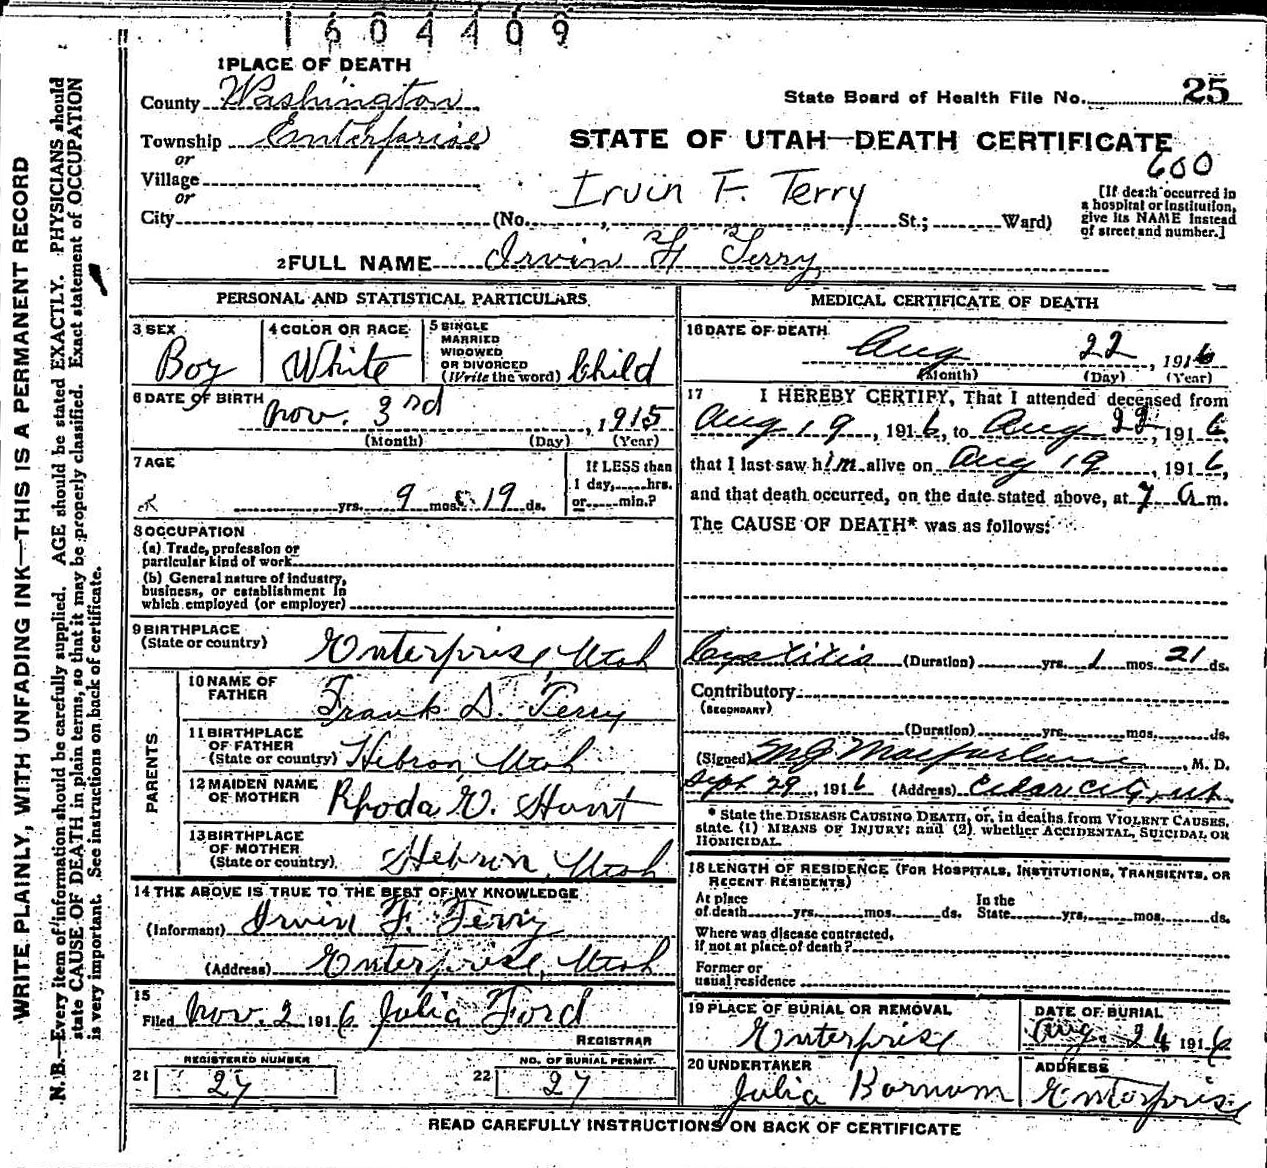 1604409
1 PLACE OF DEATH
County Washington
State Board of Health File No. 25
Township Enterprise
STATE OF UTAH—DEATH CERTIFICATE
or
600
Village
Irvin F. Terry
or
City (No. , St.; Ward)
[If death occurred in
a hospital or institution,
give its NAME instead
of street and number.]
2 FULL NAME Irvin F Terry
PERSONAL AND STATISTICAL PARTICULARS
3 SEX
Boy
4 COLOR OR RACE
White
5 SINGLE
MARRIED
WIDOWED
OR DIVORCED
(Write the word) Child
6 DATE OF BIRTH
Nov. 3rd , 1915
(Month) (Day) (Year)
7 AGE
yrs. 9 mos. 19 ds.
If LESS than
1 day, hrs.
or min.?
8 OCCUPATION
(a) Trade, profession or
particular kind of work
(b) General nature of industry,
business, or establishment in
which employed (or employer)
9 BIRTHPLACE
(State or country) Enterprise Utah
PARENTS
10 NAME OF
FATHER Frank D. Terry
11 BIRTHPLACE
OF FATHER
(State or country) Hebron Utah
12 MAIDEN NAME
OF MOTHER Rhoda E. Hunt
13 BIRTHPLACE
OF MOTHER
(State or country) Hebron, Utah
14 THE ABOVE IS TRUE TO THE BEST OF MY KNOWLEDGE
(Informant) Irvin F. Terry
(Address) Enterprise, Utah
15
Filed Nov. 2 1916 Julia Ford
REGISTRAR
REGISTERED NUMBER
21 27
NO. OF BURIAL PERMIT.
22 27
MEDICAL CERTIFICATE OF DEATH
16 DATE OF DEATH
Aug 22 , 1916
(Month) (Day) (Year)
17 I HEREBY CERTIFY, That I attended deceased from
Aug 19 , 1916, to Aug 22, 1916,
that I last saw him alive on Aug 19 , 1916,
and that death occurred, on the date stated above, at 7 a m.
The CAUSE OF DEATH* was as follows:
Cystitis (Duration) yrs. 1 mos. 21 ds.
Contributory
(SECONDARY)
(Duration) yrs. mos. ds.
(Signed) M J Macfarlane , M. D.
Sept 29 , 1916 (Address) Cedar City, Ut.
* State the DISEASE CAUSING DEATH, or, in deaths from VIOLENT CAUSES,
state (1) MEANS OF INJURY; and (2) whether ACCIDENTAL, SUICIDAL OR
HOMICIDAL.
18 LENGTH OF RESIDENCE (FOR HOSPITALS, INSTITUTIONS, TRANSIENTS, OR
RECENT RESIDENTS)
At place
of death yrs. mos. ds.
In the
State yrs. mos. ds.
Where was disease contracted,
if not at place of death?
Former or
usual residence
19 PLACE OF BURIAL OR REMOVAL
Enterprise
DATE OF BURIAL
Aug. 24 1916
20 UNDERTAKER
Julia Barnum
ADDRESS
Enterprise
READ CAREFULLY INSTRUCTIONS ON BACK OF CERTIFICATE
WRITE PLAINLY, WITH UNFADING INK—THIS IS A PERMANENT RECORD
N. B.—Every item of information should be carefully supplied. AGE should be stated EXACTLY. PHYSICIANS should
state CAUSE OF DEATH in plain terms, so that it may be properly classified. Exact statement of OCCUPATION
is very important. See instructions on back of certificate.